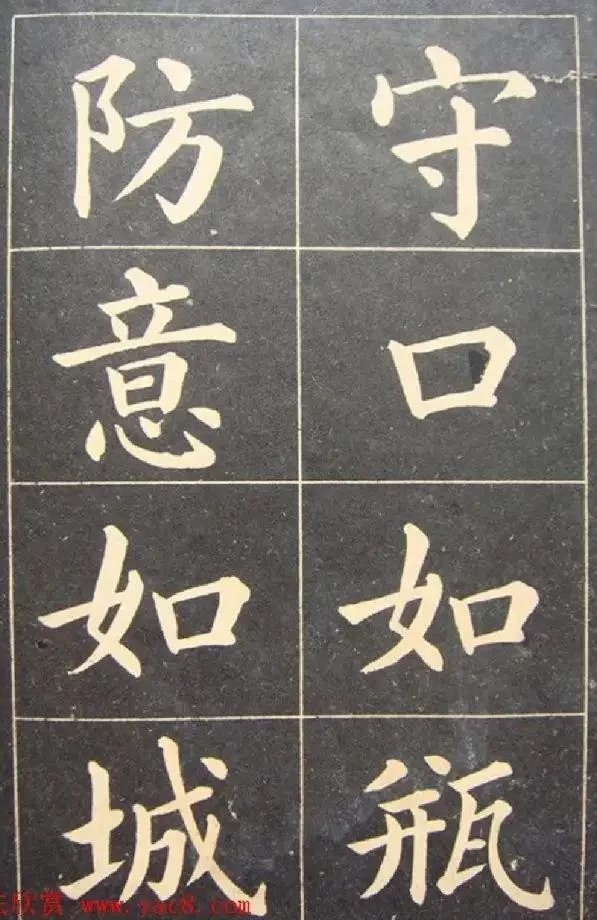 守口如瓶
防意如城
欣赏 www.yac8.com